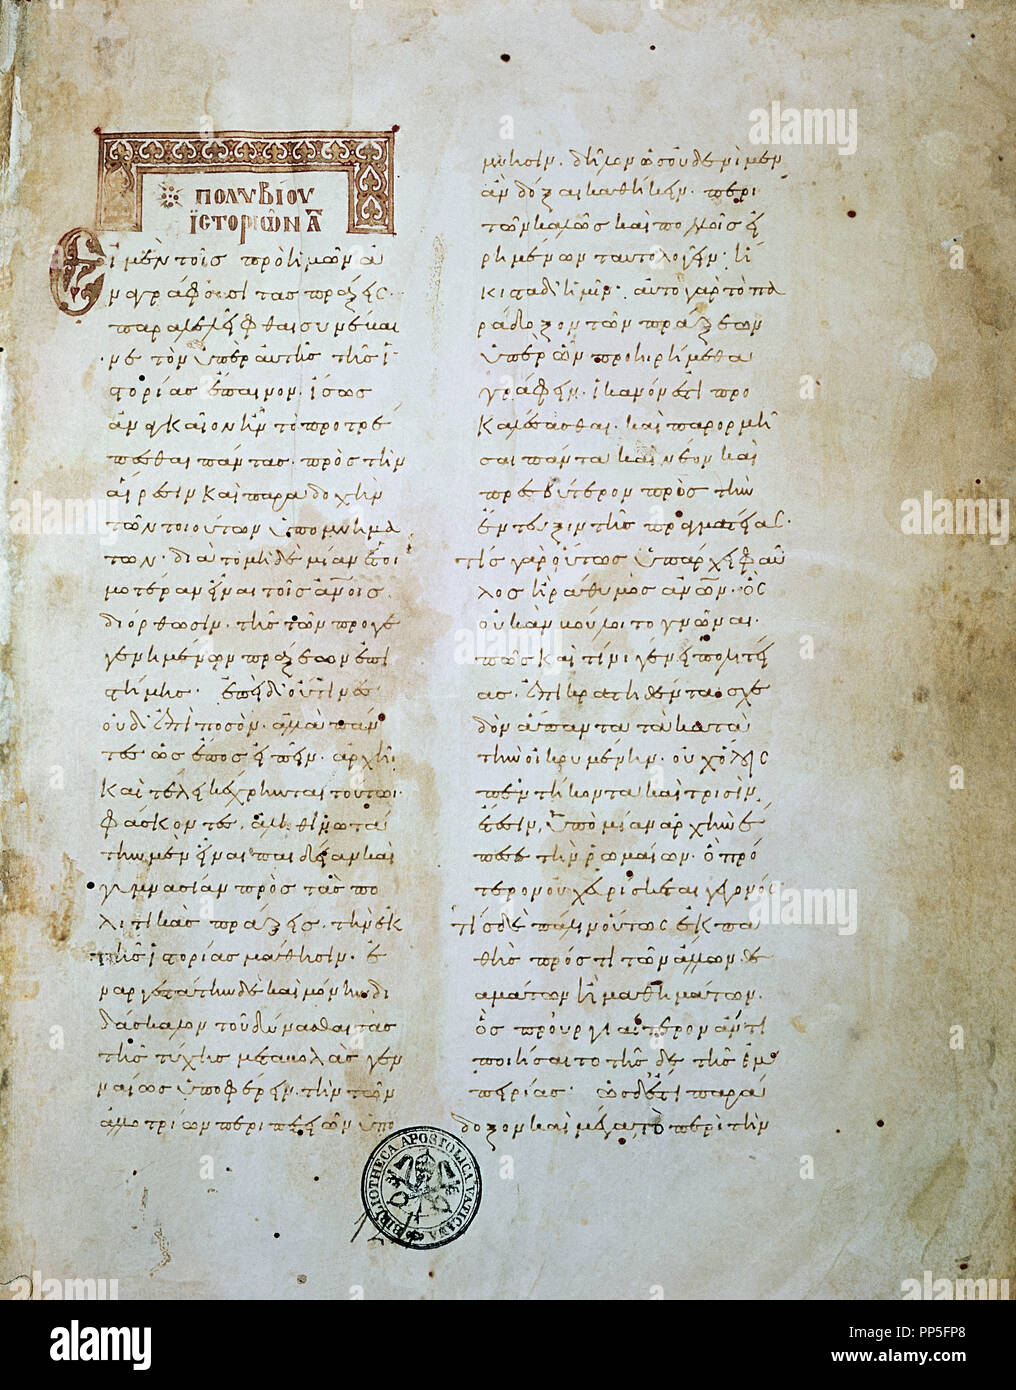 ΠΟΛΥΒΙΟΥ
ΙΣΤΟΡΙΩΝ Α
Εἰ μὲν τοῖς πρὸ ἡμῶν ἀ
ναγράφουσι τὰς πράξεις
παραλελεῖφθαι συνέβαι
νε τὸν ὑπὲρ αὐτῆς τῆς ἱ
στορίας ἔπαινον· ἴσως
ἀναγκαῖον ἦν τὸ προτρέ
πεσθαι πάντας πρὸς τὴν
αἵρεσιν καὶ παραδοχὴν
τῶν τοιούτων ὑπομνημά
των· διὰ τὸ μηδεμίαν ἑτοι
μοτέραν εἶναι τοῖς ἀνοις
διόρθωσιν· τῆς τῶν προγε
γενημένων πράξεων ἐπι
στήμης· ἐπεὶ δ' οὐ τινὲς
οὐδ' ἐπὶ ποσόν· ἀλλὰ πάν
τες ὡς ἔπος εἰπεῖν· ἀρχῇ
καὶ τέλει κέχρηνται τούτῳ·
φάσκοντες, ἀληθινωτά
την μὲν εἶναι παιδείαν καὶ
γυμνασίαν πρὸς τὰς πο
λιτικὰς πράξεις· τὴν ἐκ
τῆς ἱστορίας μάθησιν· ἐ
ναργεστάτην δὲ καὶ μόνην δι
δάσκαλον τοῦ δύνασθαι τὰς
τῆς τύχης μεταβολὰς γεν
ναίως ὑποφέρειν· τὴν τῶν
ἀλλοτρίων περιπετειῶν ὑπό
μνησιν· δῆλον ὡς οὐδενὶ μὲν
ἂν δόξαι καθήκειν· περὶ
τῶν καλῶς καὶ πολλοῖς εἰ
ρημένων ταυτολογεῖν· ἥ
κιστα δ' ἡμῖν· αὐτὸ γὰρ τὸ πα
ράδοξον τῶν πράξεων
ὑπὲρ ὧν προῃρήμεθα
γράφειν· ἱκανόν ἐστι προ
καλέσασθαι· καὶ παρορμῆ
σαι πάντα καὶ νέον καὶ
πρεσβύτερον πρὸς τὴν
ἔντευξιν τῆς πραγματείας·
τίς γὰρ οὕτως ὑπάρχει φαῦ
λος ἢ ῥάθυμος ἀνων· ὃς
οὐκ ἂν βούλοιτο γνῶναι·
πῶς καὶ τίνι γένει πολιτεί
ας· ἐπικρατηθέντα σχε
δὸν ἅπαντα τὰ κατὰ
τὴν οἰκουμένην· οὐχ ὅλοις
πεντήκοντα καὶ τρισὶν
ἔτεσιν, ὑπὸ μίαν ἀρχὴν ἔ
πεσε τὴν ῥωμαίων· ὃ πρό
τερον οὐχ εὑρίσκεται γεγονός
τίς δὲ πάλιν οὕτως ἐκπα
θὴς πρός τι τῶν ἄλλων θε
αμάτων ἢ μαθημάτων·
ὃς προυργιαίτερον ἄν τι
ποιήσαιτο τῆσδε τῆς ἐμ
πειρίας· ὡς δ' ἐστὶ παρά
δοξον καὶ μέγα τὸ περὶ τὴν
BIBLIOTHECA APOSTOLICA VATICANA
alamy
PP5FP8
www.alamy.com